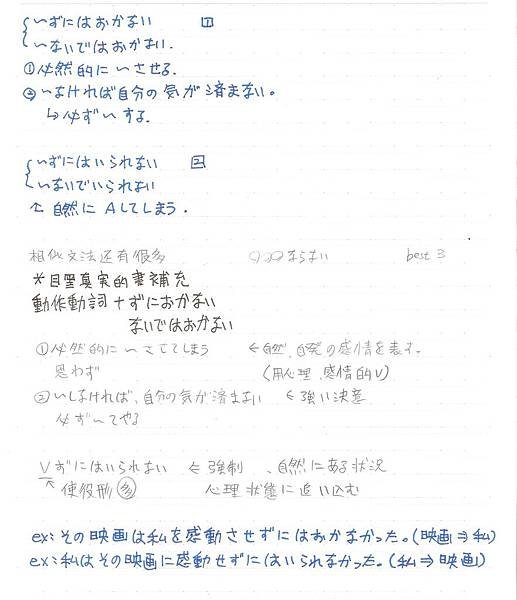 ～ずにはおかない 1
～ないではおかない.
①必然的に～させる.
②～なければ自分の気が済まない。
↳必ず～する.
～ずにはいられない 2
～ないでいられない
↑ 自然に Aしてしまう.
相似文法还有很多 ○○○ならない best 3
*目黒真実的書補充
動作動詞+ずにおかない
ないではおかない
①必然的に～させてしまう ←自然、自発の感情を表す.
思わず (用心理、感情的V)
②～しなければ、自分の気が済まない ←強い決意
必ず～てやる
Vずにはいられない ←強制、自然にある状況
↑使役形 多 心理状態に追い込む
ex:その映画は私を感動させずにはおかなかった。(映画⇒私)
ex:私はその映画に感動せずにはいられなかった。(私⇒映画)